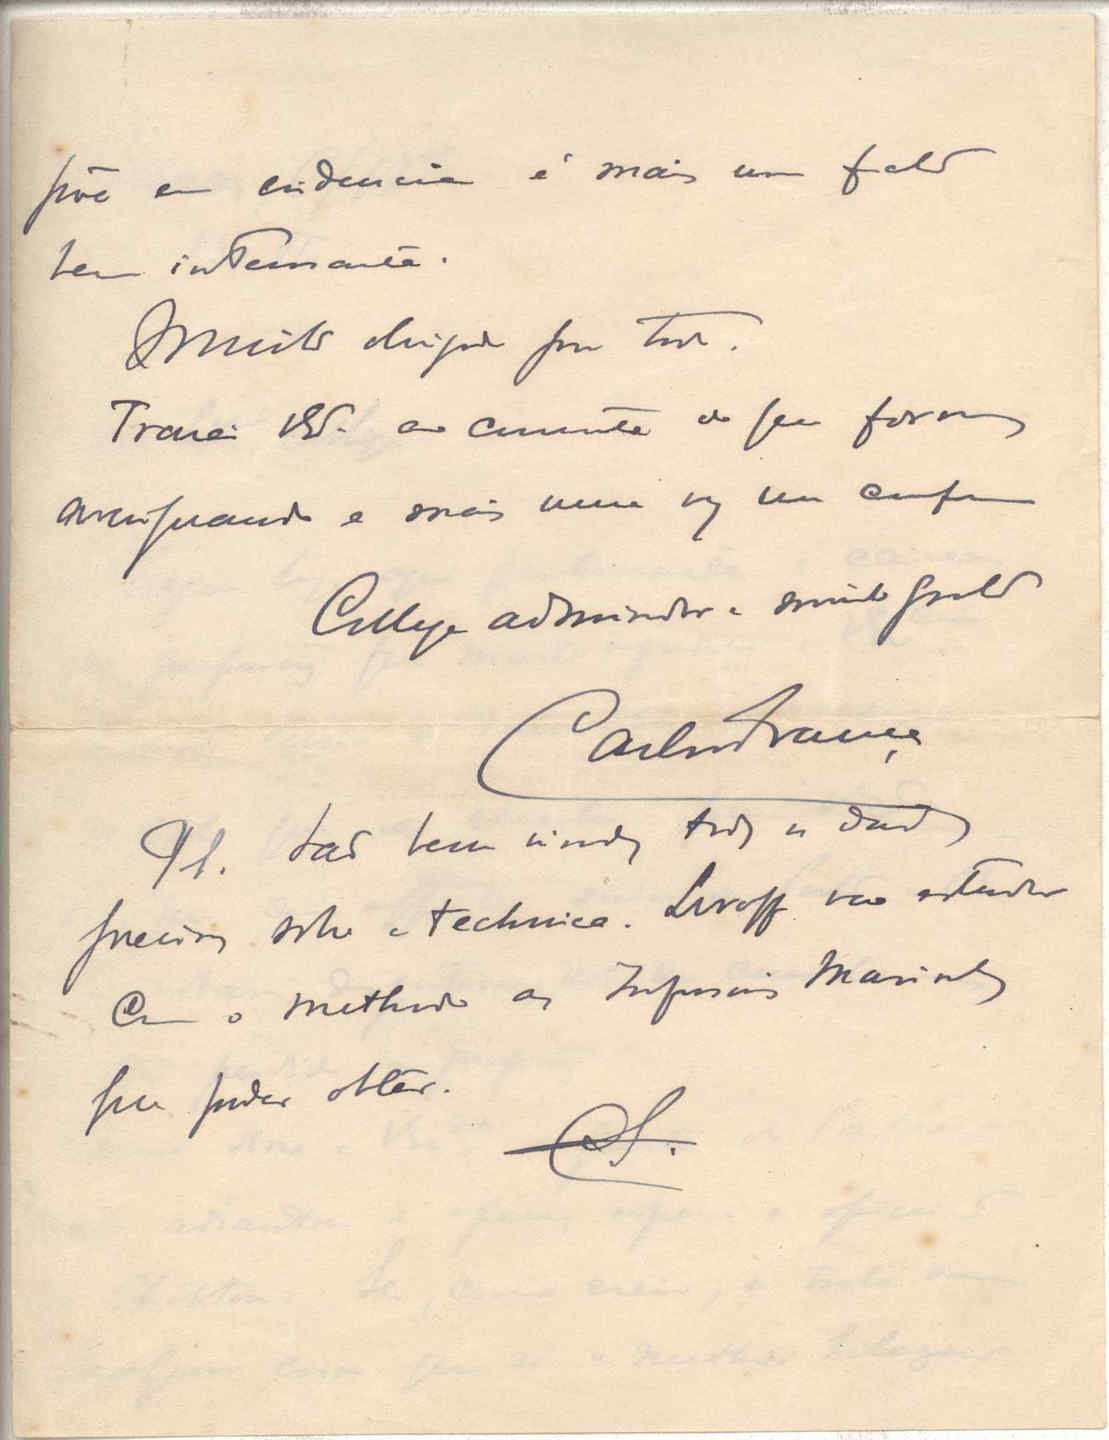 põe em evidencia é mais um facto
bem interessante.
Muito obrigado por tudo.
Trarei VEx. ao corrente do que formos
averiguando e mais uma vez me confesso
Collega admirador e muito grato
Carlos França
PS. São bem vindos todos os dados
precisos sobre a technica. Lwoff vae estudar
com o methodo as Infusorios Marinhos
que poder obter.
CF.